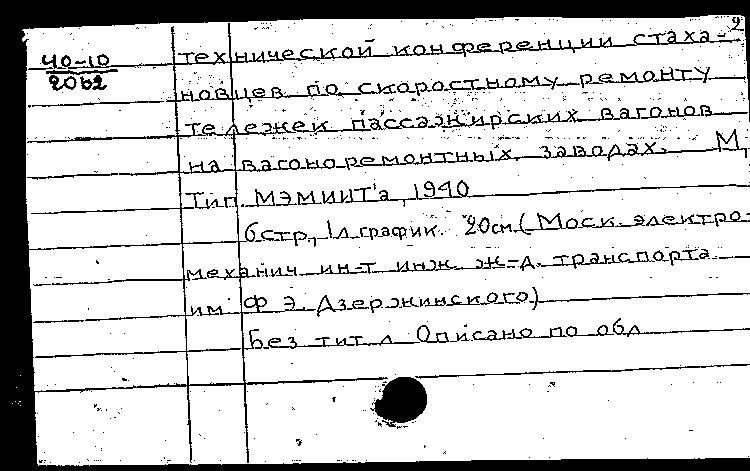 2
40-10
20b2
технической конференции стаха-
новцев по скоростному ремонту
тележек пассажирских вагонов
на вагоноремонтных заводах. М,
Тип. МЭМИИТ'а, 1940
6стр, 1л график. 20см (Моск. электро-
механич ин-т инж ж-д. транспорта
им Ф Э. Дзержинского)
Без тит л Описано по обл